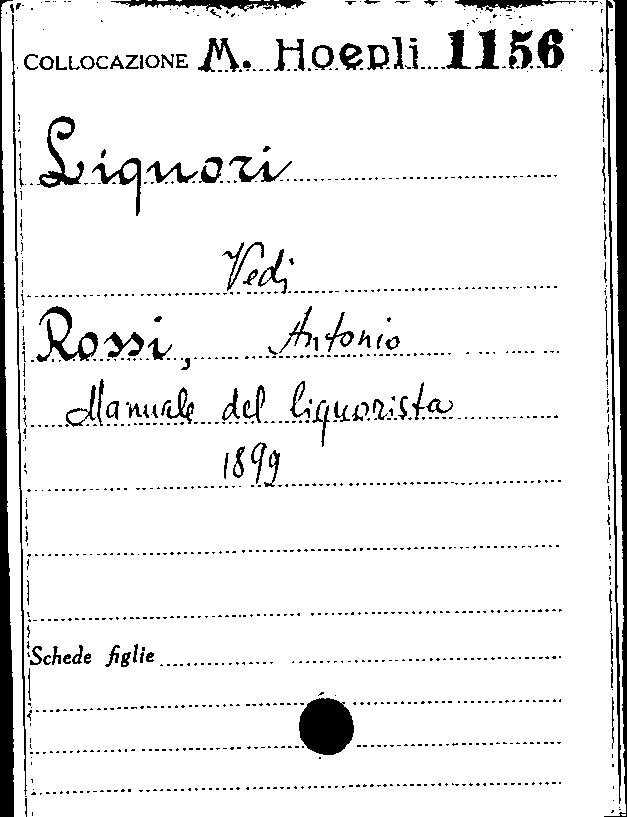 COLLOCAZIONE M. Hoepli 1156
Liquori
Vedi
Rossi, Antonio
Manuale del liquorista
1899
Schede figlie